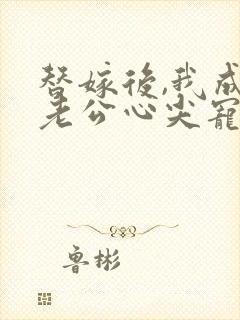 替嫁後,我成
老公心尖寵
鲁彬